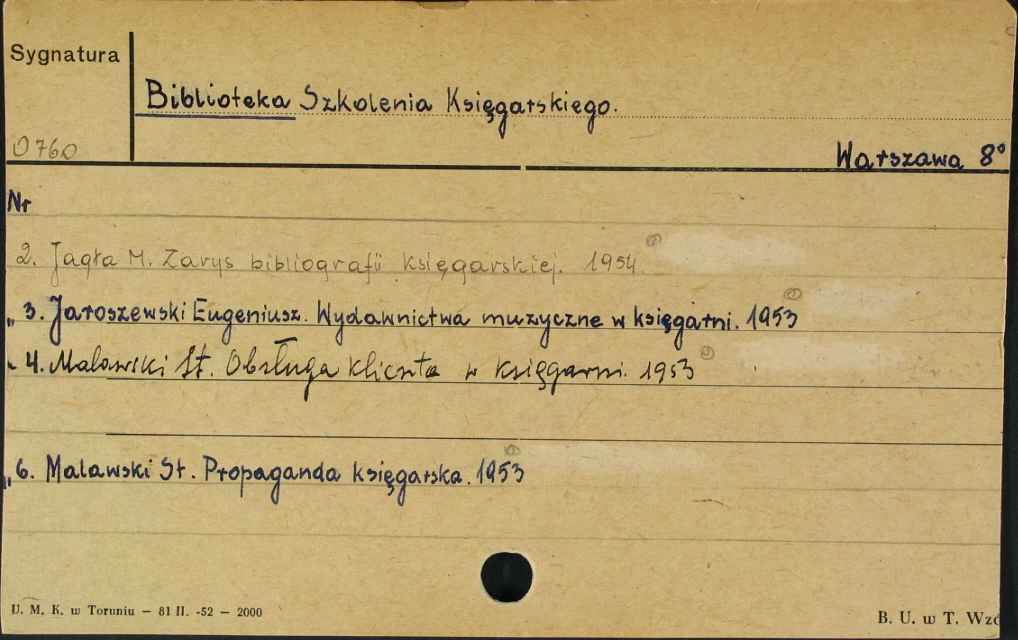 Sygnatura
Biblioteka Szkolenia Księgarskiego.
0760
Warszawa 8°
Nr
2. Jagła M. Zarys bibliografii księgarskiej. 1954
„ 3. Jaroszewski Eugeniusz. Wydawnictwa muzyczne w księgarni. 1953
„ 4. Malawski St. Obsługa klienta w księgarni. 1953
„ 6. Malawski St. Propaganda księgarska. 1953
U. M. K. w Toruniu — 81 II. -52 — 2000
B. U. w T. Wzó